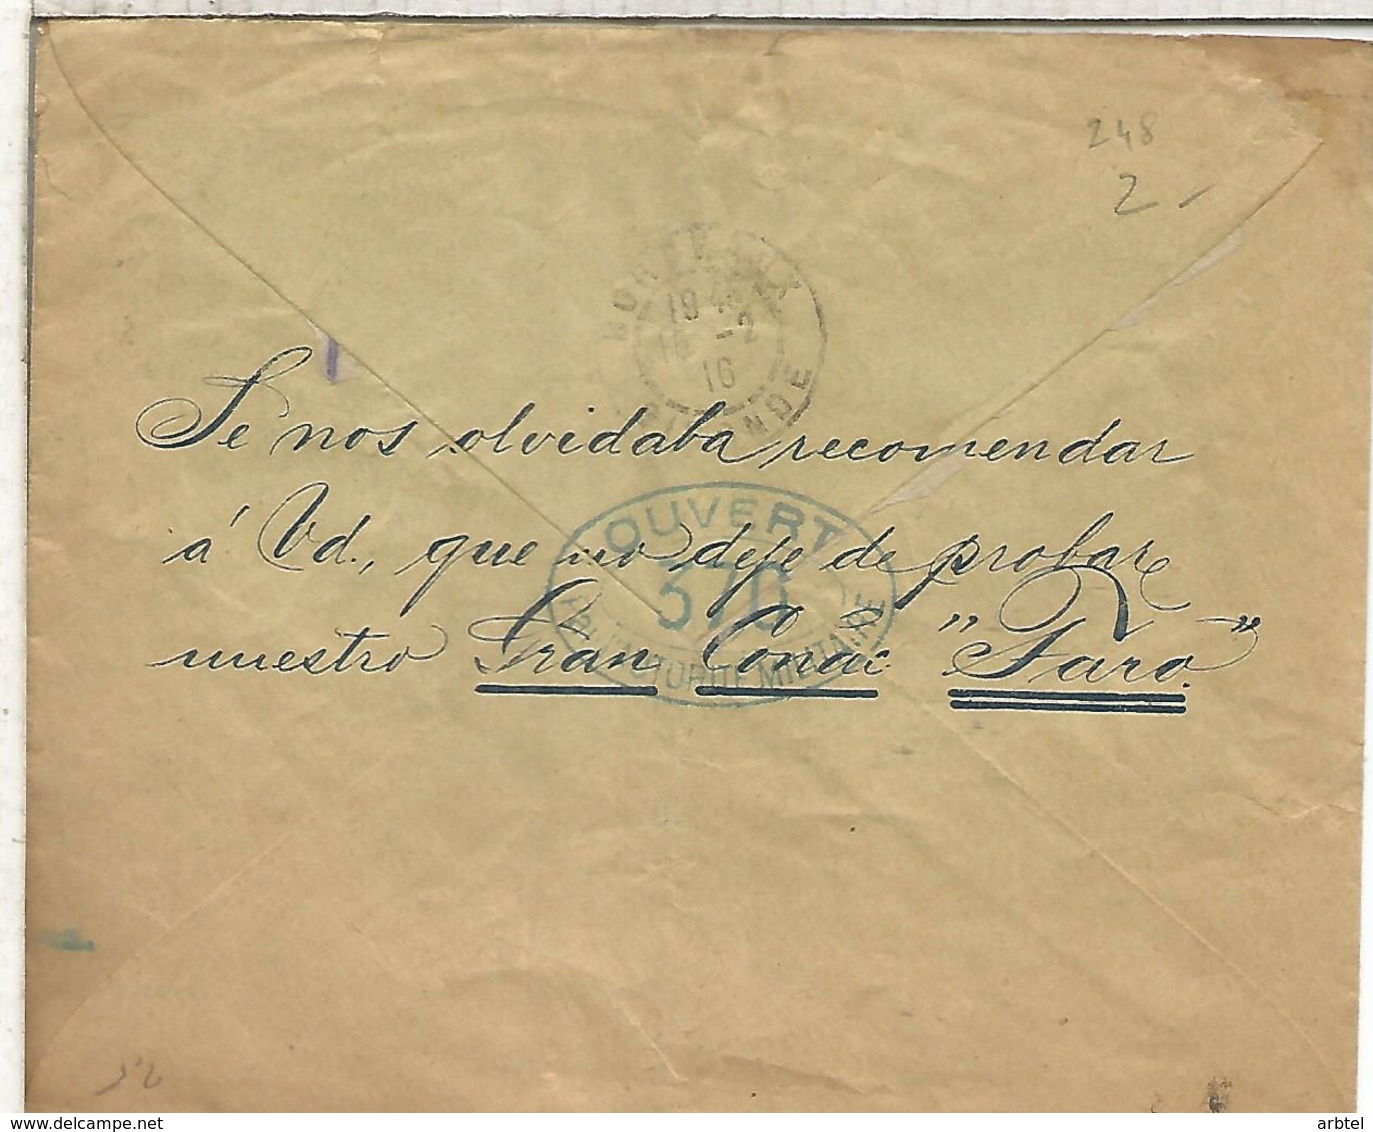 248
2 -
BORDEAUX
18 -2
16
GIRONDE
Se nos olvidaba recomendar
á Vd., que no deje de probar
nuestro Gran Coñac "Faro."
OUVERT
370
PAR L'AUTORITÉ MILITAIRE
www.delcampe.net
arbtel